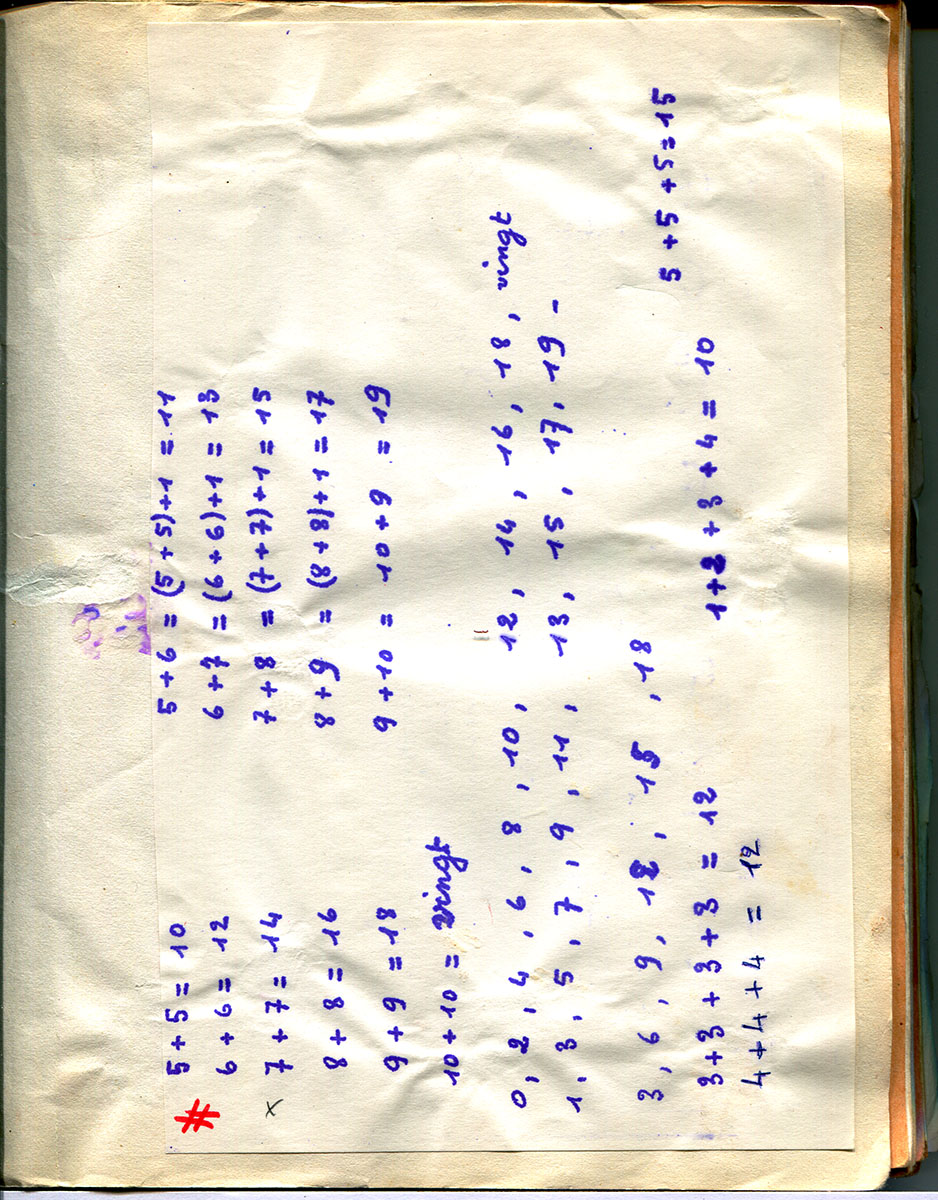 # 5 + 5 = 10 5 + 6 = (5 + 5) + 1 = 11
6 + 6 = 12 6 + 7 = (6 + 6) + 1 = 13
x 7 + 7 = 14 7 + 8 = (7 + 7) + 1 = 15
8 + 8 = 16 8 + 9 = (8 + 8) + 1 = 17
9 + 9 = 18 9 + 10 = 10 + 9 = 19
10 + 10 = vingt
0, 2, 4, 6, 8, 10, 12, 14, 16, 18, vingt
1, 3, 5, 7, 9, 11, 13, 15, 17, 19 -
3, 6, 9, 12, 15, 18 5 + 5 + 5 = 15
3 + 3 + 3 + 3 = 12 1 + 2 + 3 + 4 = 10
4 + 4 + 4 = 12